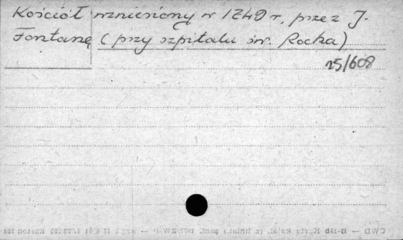 Kościół wzniesiony w 1749 r. przez J.
Fontanę (przy szpitalu św. Rocha)
25/608